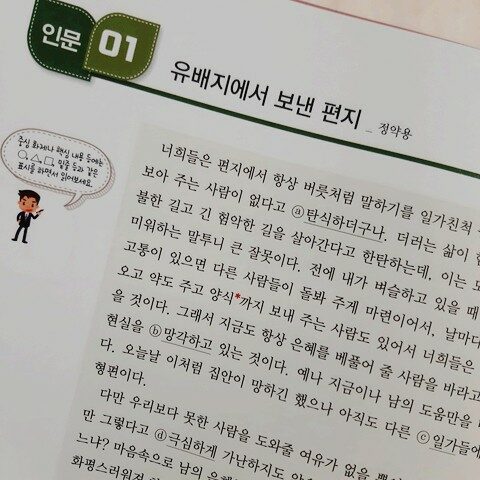 인문 01
유배지에서 보낸 편지 _ 정약용
중심 화제나 핵심 내용 등에는
○, △, □, 밑줄 등과 같은
표시를 하면서 읽어보세요.
너희들은 편지에서 항상 버릇처럼 말하기를 일가친척
보아 주는 사람이 없다고 ⓐ탄식하더구나. 더러는 삶이 험
불한 길고 긴 험악한 길을 살아간다고 한탄하는데, 이는 모
미워하는 말투니 큰 잘못이다. 전에 내가 벼슬하고 있을 때
고통이 있으면 다른 사람들이 돌봐 주게 마련이어서, 날마다
오고 약도 주고 양식*까지 보내 주는 사람도 있어서 너희들은
을 것이다. 그래서 지금도 항상 은혜를 베풀어 줄 사람을 바라고
현실을 ⓑ망각하고 있는 것이다. 예나 지금이나 남의 도움만을
다. 오늘날 이처럼 집안이 망하긴 했으나 아직도 다른 ⓒ일가들에
형편이다.
다만 우리보다 못한 사람을 도와줄 여유가 없을
만 그렇다고 ⓓ극심하게 가난하지도
느냐? 마음속으로 남의
화평스러워져